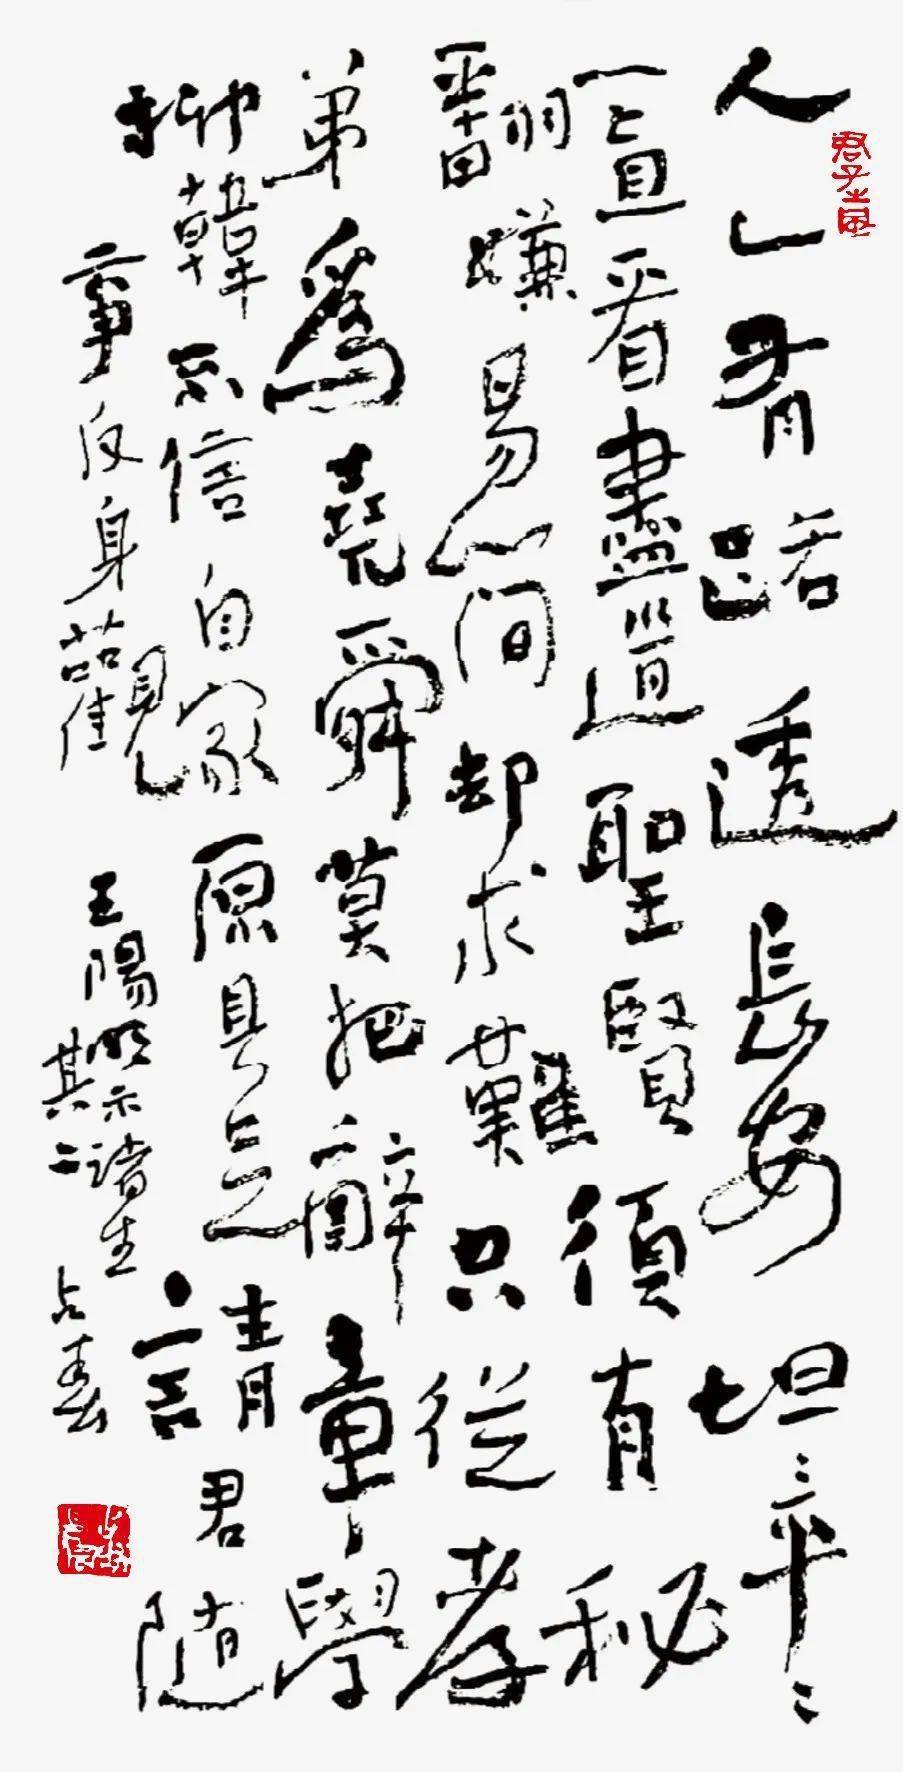 君子之風
人〻有路透長安坦〻平〻
一直看盡道聖賢須有秘
翻嫌易簡却求難只從孝
弟爲堯舜莫把辭章學
柳韓不信自家原具足請君隨
事反身觀 王陽明示諸生
其二 春